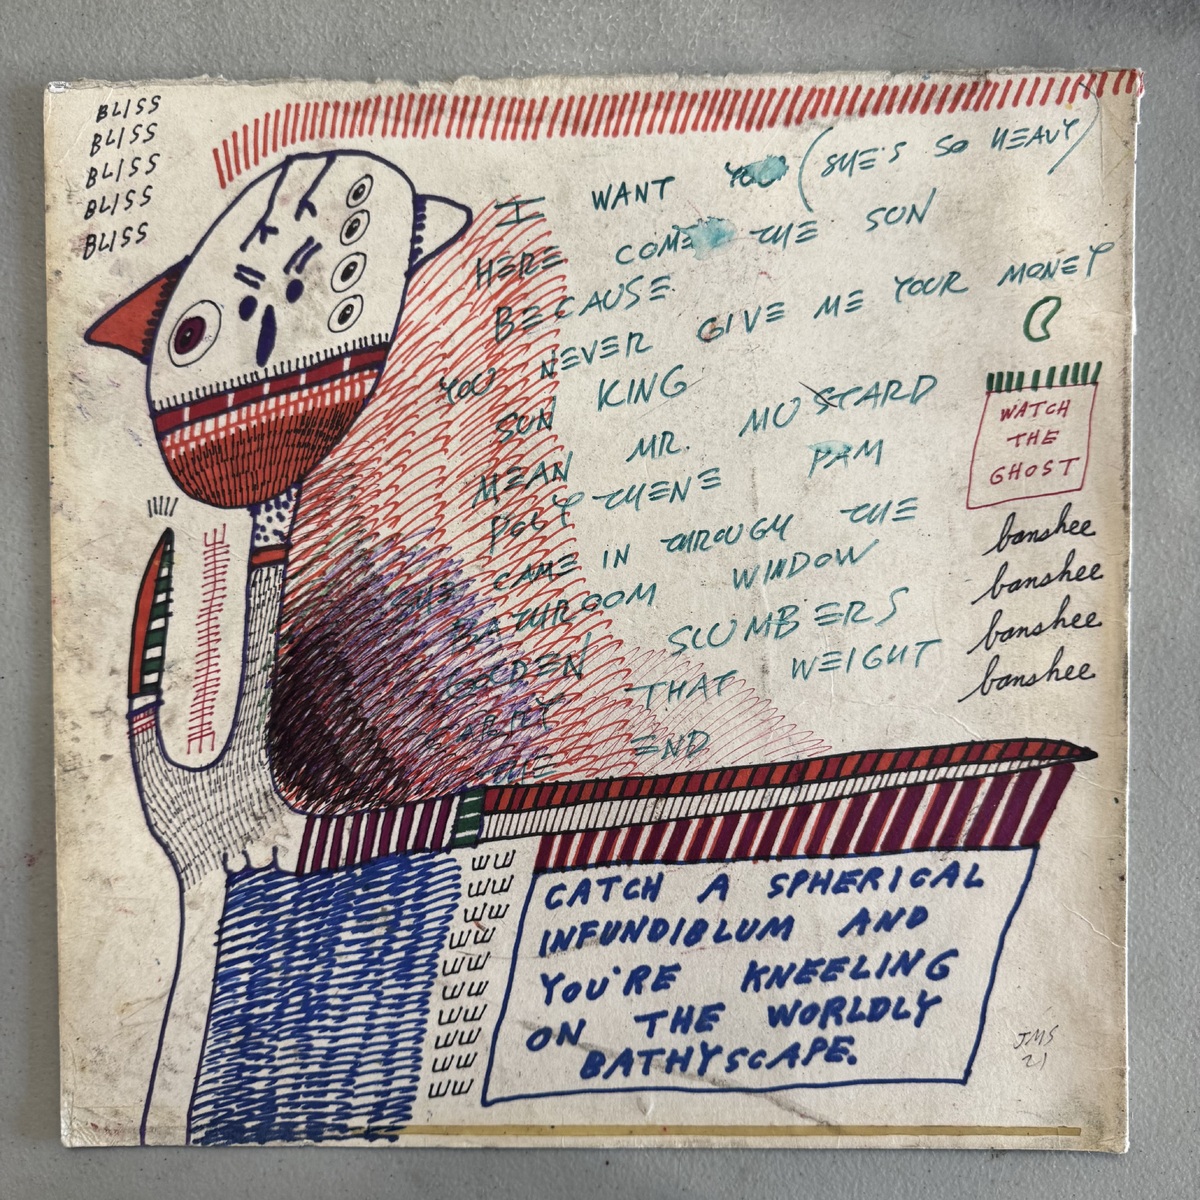 BLISS
BLISS
BLISS
BLISS
BLISS
I WANT YOU (SHE'S SO HEAVY)
HERE COME THE SON
BECAUSE
YOU NEVER GIVE ME YOUR MONEY
SUN KING
MEAN MR. MUSTARD
POLYTHENE PAM
SHE CAME IN THROUGH THE
BATHROOM WINDOW
GOLDEN SLUMBERS
CARRY THAT WEIGHT
THE END
WATCH
THE
GHOST
banshee
banshee
banshee
banshee
CATCH A SPHERICAL
INFUNDIBLUM AND
YOU'RE KNEELING
ON THE WORLDLY
BATHYSCAPE.
JMS
21